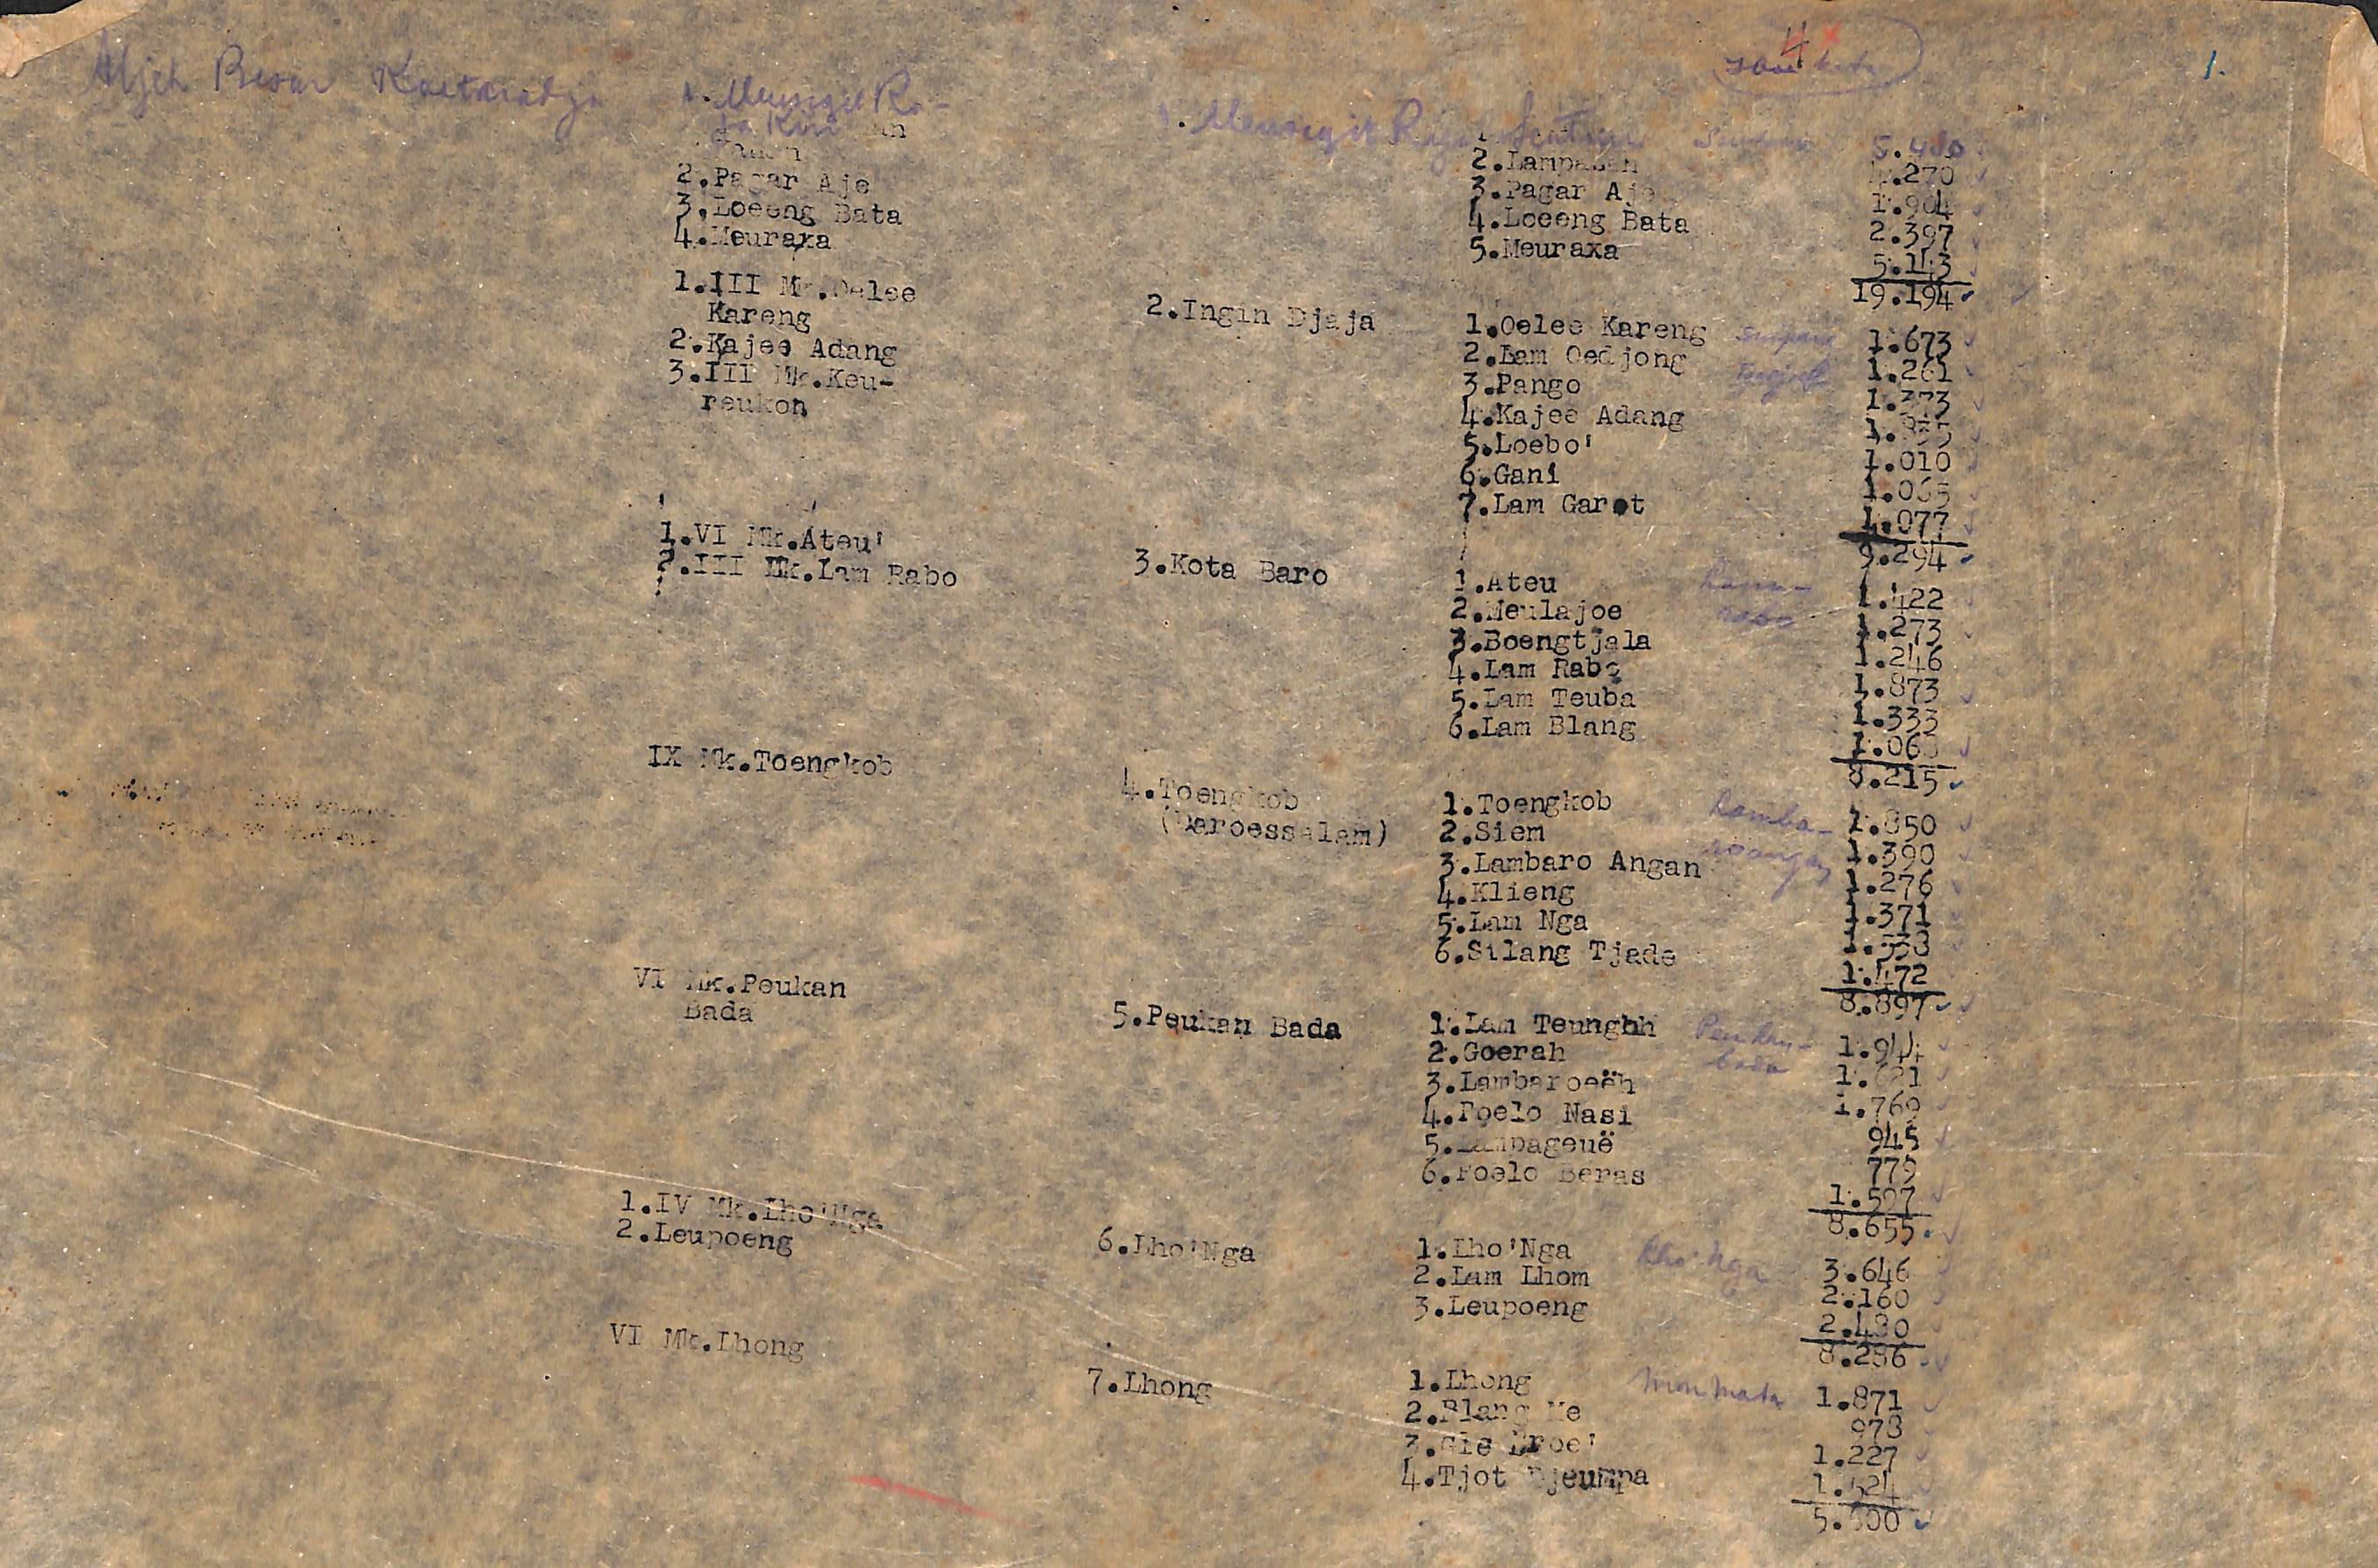 4 x
1.
Atjeh Besar Koetaradja
1. Meusegit Ra-
ja Kiri
1. Meusegit Raja
5.480
2.Pagar Aje
3.Loeeng Bata
4.Meuraxa
2.Lampaseh
4.270
3.Pagar Aje
1.904
4.Loeeng Bata
2.397
5.Meuraxa
5.143
19.194
1.III Mk.Oelee
Kareng
2.Kajee Adang
3.III Mk.Keu-
reukon
2.Ingin Djaja
1.Oelee Kareng
1.673
2.Lam Oedjong
1.261
3.Pango
1.373
4.Kajee Adang
1.835
5.Loebo'
1.010
6.Gani
1.065
7.Lam Garot
1.077
9.294
1.VI Mk.Ateu'
2.III Mk.Lam Rabo
3.Kota Baro
1.Ateu
1.422
2.Meulajoe
1.273
3.Boengtjala
1.246
4.Lam Rabo
1.873
5.Lam Teuba
1.333
6.Lam Blang
1.068
8.215
IX Mk.Toengkob
4.Toengkob
(Daroessalam)
1.Toengkob
1.850
2.Siem
1.390
3.Lambaro Angan
1.276
4.Klieng
1.371
5.Lam Nga
1.538
6.Silang Tjade
1.472
8.897
VI Mk.Peukan
Bada
5.Peukan Bada
1.Lam Teunghh
Peukan-
bada
1.944
2.Goerah
1.621
3.Lambaroeëh
1.769
4.Poelo Nasi
945
5.Lampageuë
779
6.Poelo Beras
1.597
8.655
1.IV Mk.Lho'Nga
2.Leupoeng
6.Lho'Nga
1.Lho'Nga
Lho' Nga
3.646
2.Lam Lhom
2.160
3.Leupoeng
2.480
8.286
VI Mk.Lhong
7.Lhong
1.Lhong
1.871
2.Blang Me
978
3.Gle Broe'
1.227
4.Tjot Djeumpa
1.524
5.600